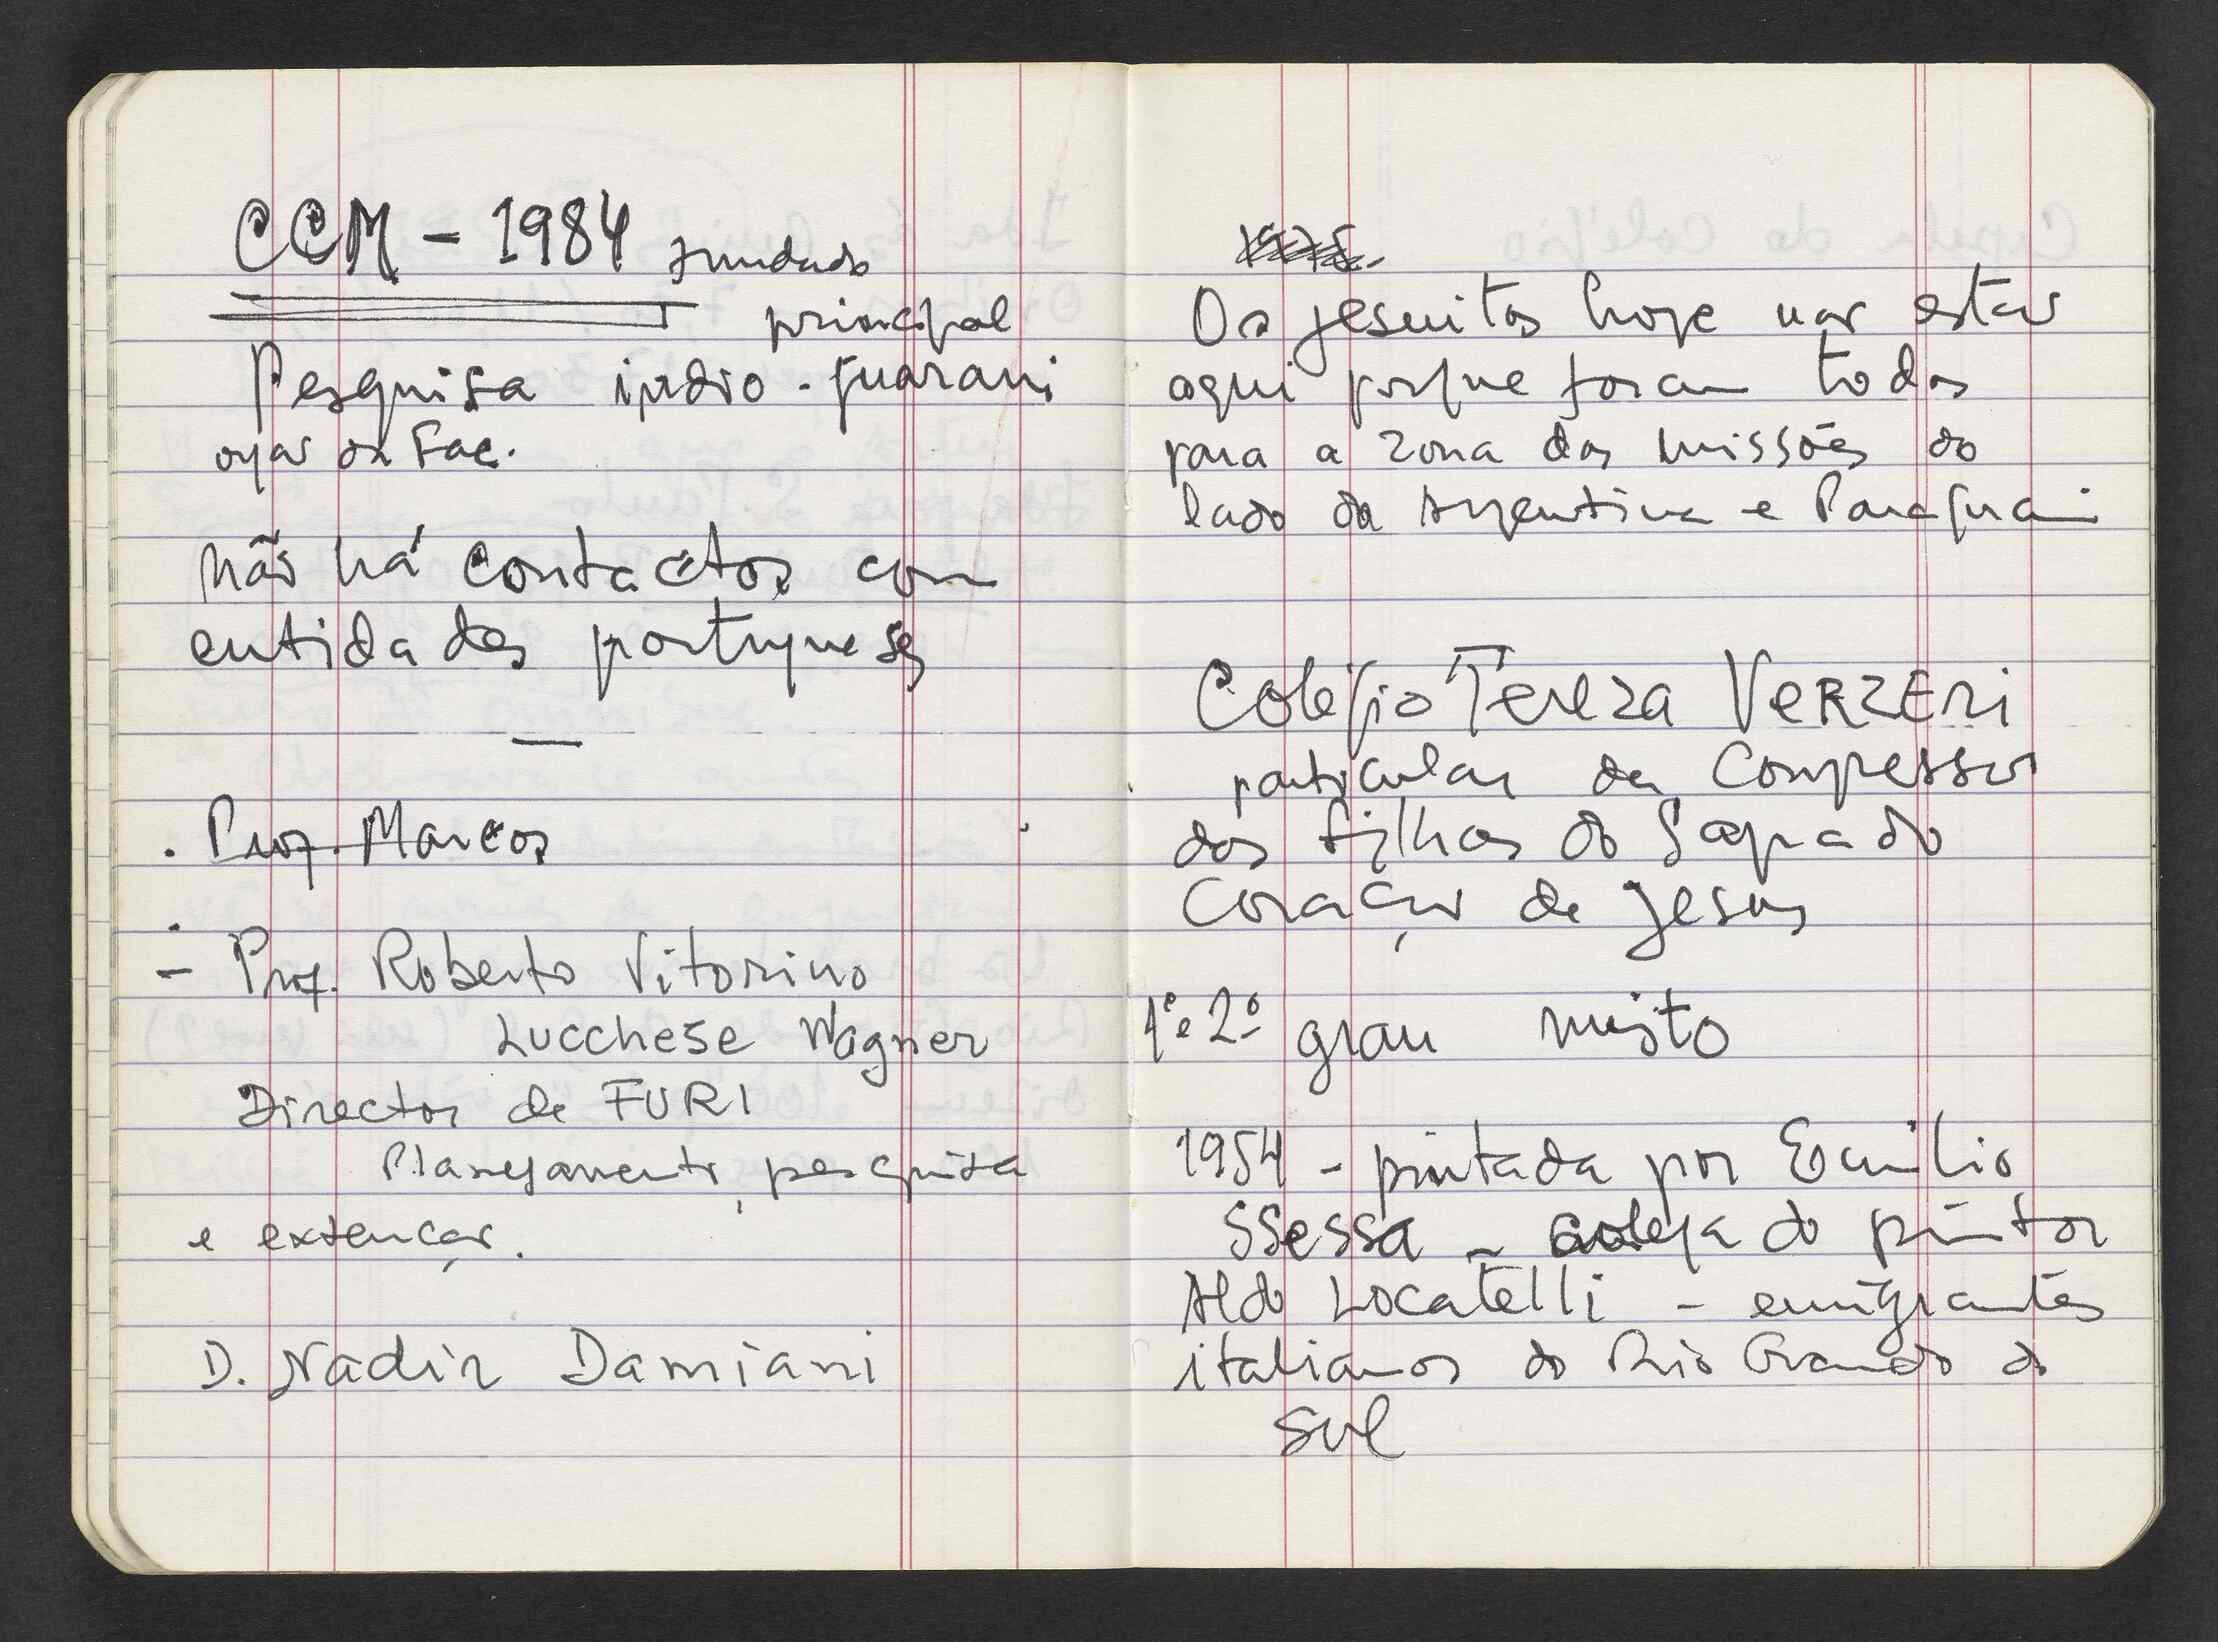 CCM - 1984 fundado
principal
Pesquisa indio-guarani
da Fac.
não há contactos com
entidades portugueses
—
. Prof. Marcos
- Prof. Roberto Vitorino
Lucchese Wagner
Director de FURI
Planejamento, pesquisa
e extenção.
D. Nadir Damiani
1975
Os jesuitas hoje não estão
aqui porque foram todos
para a zona das missões do
lado da Argentina e Paraguai
Colégio Tereza VERZERi
particular da Congressão
das filhas do Sagrado
Coração de Jesus
1º e 2º grau misto
1954 - pintada por Emilio
SSessa - colega do pintor
Aldo Locatelli - emigrantes
italianos do Rio Grande do
Sul